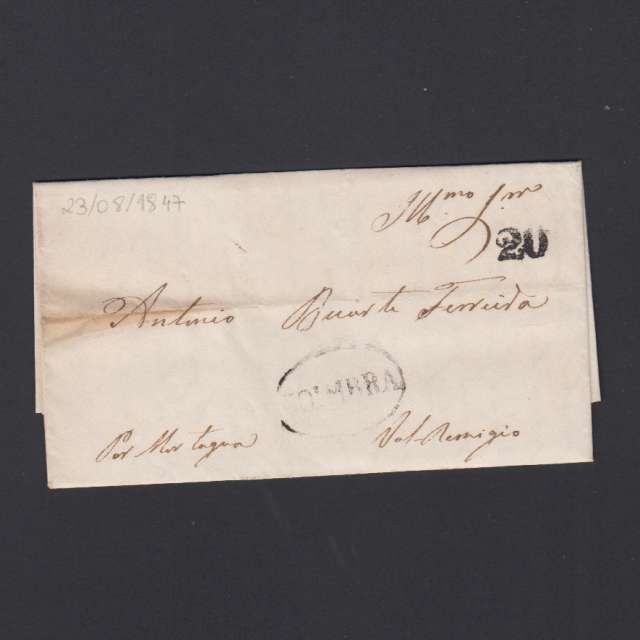 23/08/1847
Ill.mo Snr
20
Antonio Duarte Ferreira
COIMBRA
Por Mortagua Val Remigio